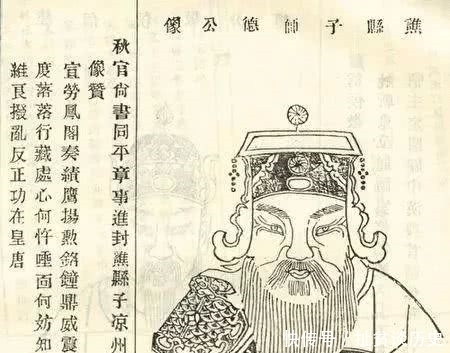 譙縣子師德公像
秋官尚書同平章事進封譙縣子凉州
像贊
宣勞鳳閣奏績鷹揚勲銘鐘鼎威震
度落落行藏處心何忤唾面何妨知
維良撥亂反正功在皇唐
快传号